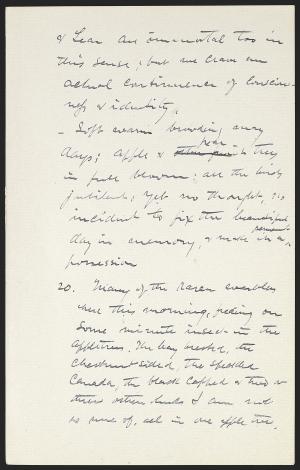 & Lear are immortal too in
this sense, but we crave an
actual continuence of conscious-
ness & identity.
- Soft warm brooding May
days; apple & pear trees
in full bloom; all the birds
jubilant; yet no thought, no
incident to fix the beautiful
day in memory, & make it a permanent
possession
20. Many of the rarer warblers
here this morning, feeding on
some minute insect in the
apple trees. The bay breasted, the
chestnut sided, the speckled
Canada, the black capped & two or
three other kinds I am not
so sure of, all in one apple tree.